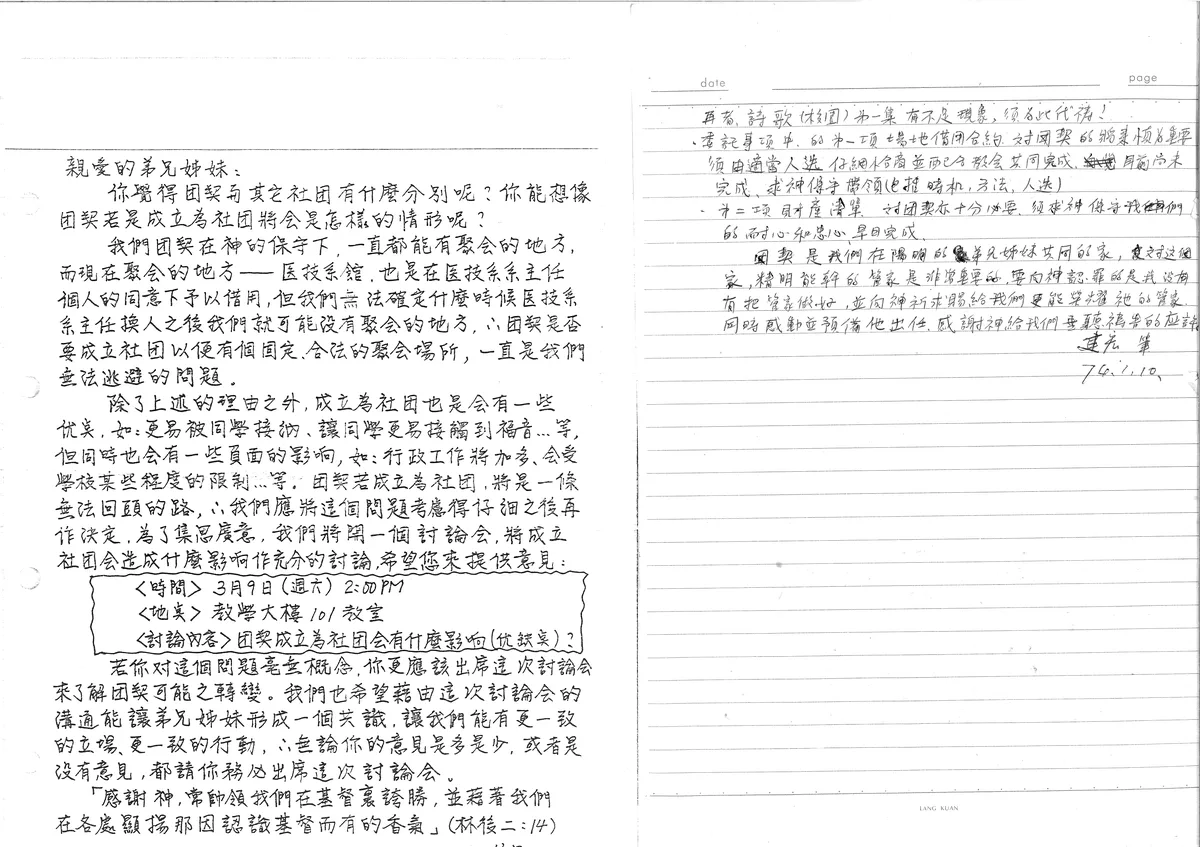 親愛的弟兄姊妹：
你覺得团契与其它社团有什麼分別呢？你能想像
团契若是成立為社团將会是怎樣的情形呢？
我們团契在神的保守下，一直都能有聚会的地方，
而現在聚会的地方——医技系舘，也是在医技系系主任
個人的同意下予以借用，但我們無法確定什麼時候医技系
系主任換人之後我們就可能没有聚会的地方，∴团契是否
要成立社团以便有個固定、合法的聚会場所，一直是我們
無法逃避的問題。
除了上述的理由之外，成立為社团也是会有一些
优奌，如：更易被同學接納、讓同學更易接觸到福音…等，
但同時也会有一些負面的影响，如：行政工作將加多、会受
學校某些程度的限制…等。团契若成立為社团，將是一條
無法回頭的路，∴我們應將這個問題考慮得仔細之後再
作決定，為了集思廣意，我們將開一個討論会，將成立
社团会造成什麼影响作充分的討論，希望您來提供意見：
〈時間〉3月9日（週六）2:00PM
〈地奌〉教學大樓101教室
〈討論內容〉团契成立為社团会有什麼影响（优缺奌）？
若你对這個問題毫無概念，你更應該出席這次討論会
來了解团契可能之轉變。我們也希望藉由這次討論会的
溝通能讓弟兄姊妹形成一個共識，讓我們能有更一致
的立場、更一致的行動，∴無論你的意見是多是少，或者是
没有意見，都請你務必出席這次討論会。
「感謝神，常帥領我們在基督裏誇勝，並藉著我們
在各處顯揚那因認識基督而有的香氣」（林後二：14）
date page
再者、詩歌（校園）第一集有不足現象，須為此代禱！
・委託事項中的第一項場地借用合約，对团契的將來頗為重要
須由適當人选仔細洽商並配合教会共同完成、目前尚未
完成、求神保守帶領（包括時机，方法，人选）
・第二項財產清單　对团契亦十分必要，須求神保守我們
的耐心和忠心，早日完成。
团契是我們在陽明的弟兄姊妹共同的家，对這個
家，精明能幹的管家是非常重要的，要向神認罪的是我没有
有把管家做好，並向神祈求賜給我們更能榮耀祂的管家
同時感動並預備他出任，感謝神給我們垂聽禱告的應許
建宏 筆
74.1.10.
LANG KUAN